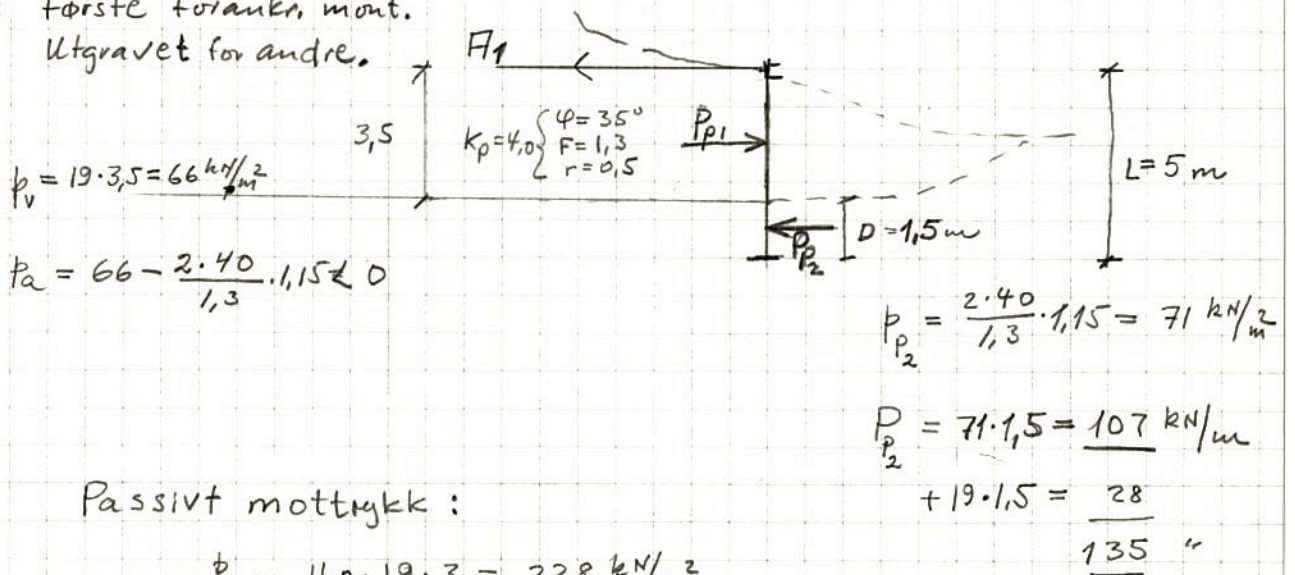 første forankr. mont.
Utgravet for andre.
A1
3,5
Kp=4,0 { φ=35° F=1,3 r=0,5
Pp1
L=5 m
pv = 19·3,5 = 66 kN/m²
D=1,5m
Pp2
pa = 66 − 2·40/1,3 ·1,15 < 0
pp2 = 2·40/1,3 ·1,15 = 71 kN/m²
Pp2 = 71·1,5 = 107 kN/m
+ 19·1,5 = 28
135 "
Passivt mottrykk :
p 4,0·19·3 = 228 kN/ 2